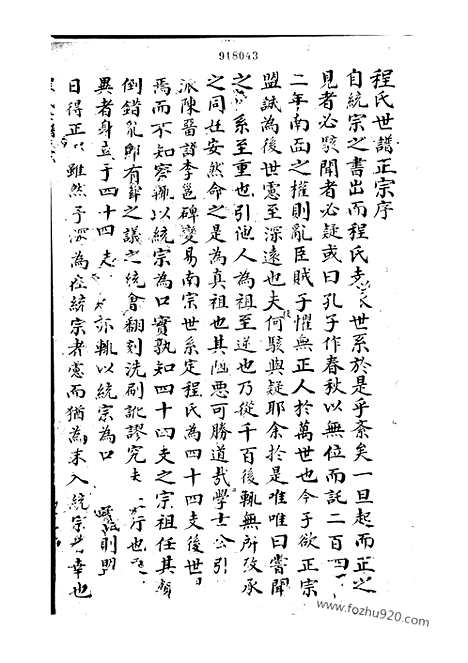 918043
程氏世譜正宗序
自統宗之書出而程氏世系於是乎紊矣一旦起而正之
見者必駭聞者必疑或曰孔子作春秋以無位而託二百四
二年南面之權則亂臣賊子懼無正人於萬世也今子欲正宗
盟誠為後世慮至深遠也夫何駭與疑耶余於是唯唯曰嘗聞
之系至重也引他人為祖至逆也乃從千百後輒無所攷承
之同妊安然命之是為真祖也其醜惡可勝道哉學士公引
派陳晉譜李邕碑變易南宗世系定程氏為四十四支後世
焉而不知察輒以統宗為口實孰知四十四支之宗祖任其顛
倒錯亂即有辭之議之統會翻刻洗刷訛謬究夫行也
異者身立于四十四亦輒以統宗為口則
日得正雖然予深為在統宗者慮而猶為未入統宗者幸也
www.fozhu920.com